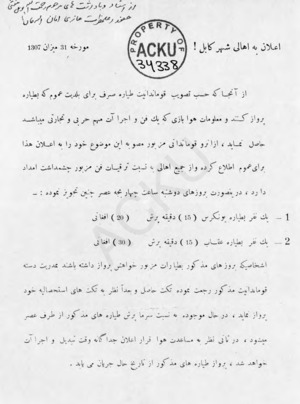 PROPERTY OF
ACKU
34338
اعلان به اهالی شهر کابل !
مورخه 31 میزان 1307
از آنجا که حسب تصویب قوماندانیت طیاره صرف برای بلدیت عموم که بطیاره
پرواز کنند و معلومات هوا بازی که یك فن و اجرا آن مهم حربی و تجارتی میباشد
حاصل نمایند ، ازانرو قوماندانی مزبور عضو به این موضوع خود را به اعلان هذا
برای عموم اطلاع کرده واز جمیع اهالی به نسبت ترقیات فن مزبور چشمداشت امداد
دارد ، درینصورت بروزهای دوشنبه ساعت چهار بجه عصر چنین تجویز نموده : ـ
1 ـ یك نفر بطیاره یونکرس (15) دقیقه پرش (20) افغانی
2 ـ یك نفر بطیاره عقاب (15) دقیقه پرش (30) افغانی
اشخاصیکه بروز های مذکور بطیارات مزبور خواهش پرواز داشته باشند بمدیریت دسته
قوماندانیت مذکور رجعت نموده تکت حاصل و بعداً نظر به تکت های استحصالیه خود
پرواز نماید ، در حال موجوده به نسبت سرما پرش طیاره های مذکور از طرف عصر
میشود ، در ثانی نظر به مساعدت هوا قرار اعلان جداگانه وقت تبدیل و اجرا آن
خواهد شد ، پرواز طیاره های مذکور از تاریخ حال جریان می یابد .
ACKU